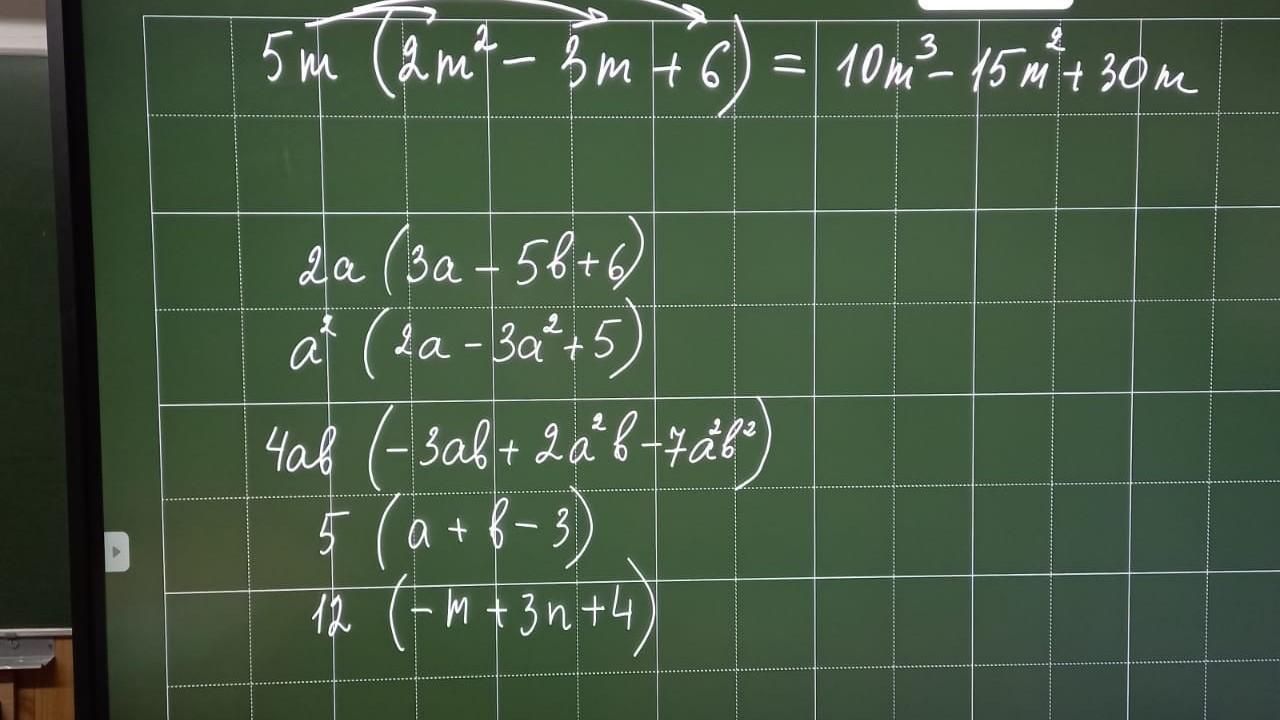 5m (2m² - 3m + 6) = 10m³ - 15m² + 30m
2a (3a - 5b + 6)
a² (2a - 3a² + 5)
4ab (-3ab + 2a²b - 7a²b²)
5 (a + b - 3)
12 (-m + 3n + 4)